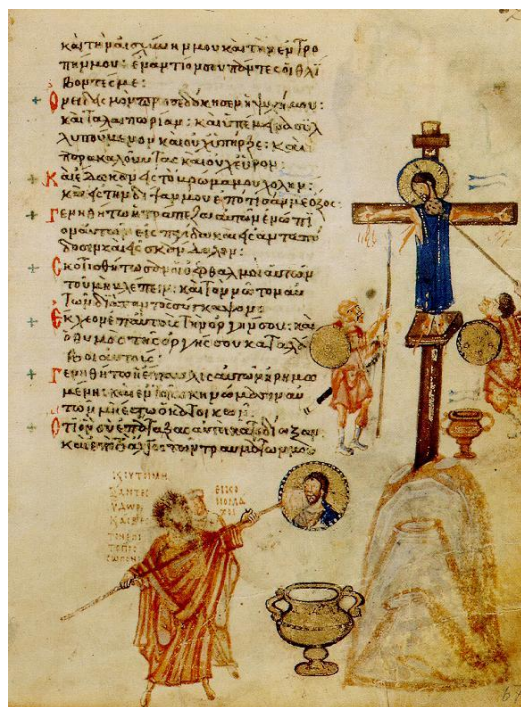 καὶ τὴν αἰσχύνην μου καὶ τὴν ἐντρο
πήν μου: ἐναντίον σου πάντες οἱ θλί
βοντές με:
προσεδόκησεν ἡ ψυχή μου:
καὶ ταλαιπωρίαν: καὶ ὑπέμεινα συλ
λυπούμενον καὶ οὐχ ὑπῆρξε: καὶ
παρακαλοῦντας καὶ οὐχ εὗρον:
Καὶ ἔδωκαν εἰς τὸ βρῶμα μου χολήν:
καὶ εἰς τὴν δίψαν μου ἐπότισάν με ὄξος:
Γενηθήτω ἡ τράπεζα αὐτῶν ἐνώπι
ον αὐτῶν εἰς παγίδα καὶ εἰς ἀνταπό
δοσιν καὶ εἰς σκάνδαλον:
Σκοτισθήτωσαν οἱ ὀφθαλμοὶ αὐτῶν
τοῦ μὴ βλέπειν: καὶ τὸν νῶτον αὐ
τῶν διὰ παντὸς σύγκαμψον
Ἔκχεον ἐπ αὐτοὺς τὴν ὀργήν σου: καὶ
ὁ θυμὸς τῆς ὀργῆς σου καταλά
βοι αὐτούς:
Γενηθήτω ἡ ἔπαυλις αὐτῶν ἠρημω
μένη: καὶ ἐν τοῖς σκηνώμασιν αὐ
τῶν μὴ ἔστω ὁ κατοικῶν:
Ὅτι ὃν σὺ ἐπάταξας αὐτοὶ κατεδίωξαν
καὶ ἐπὶ τὸ ἄλγος τῶν τραυμάτων μου